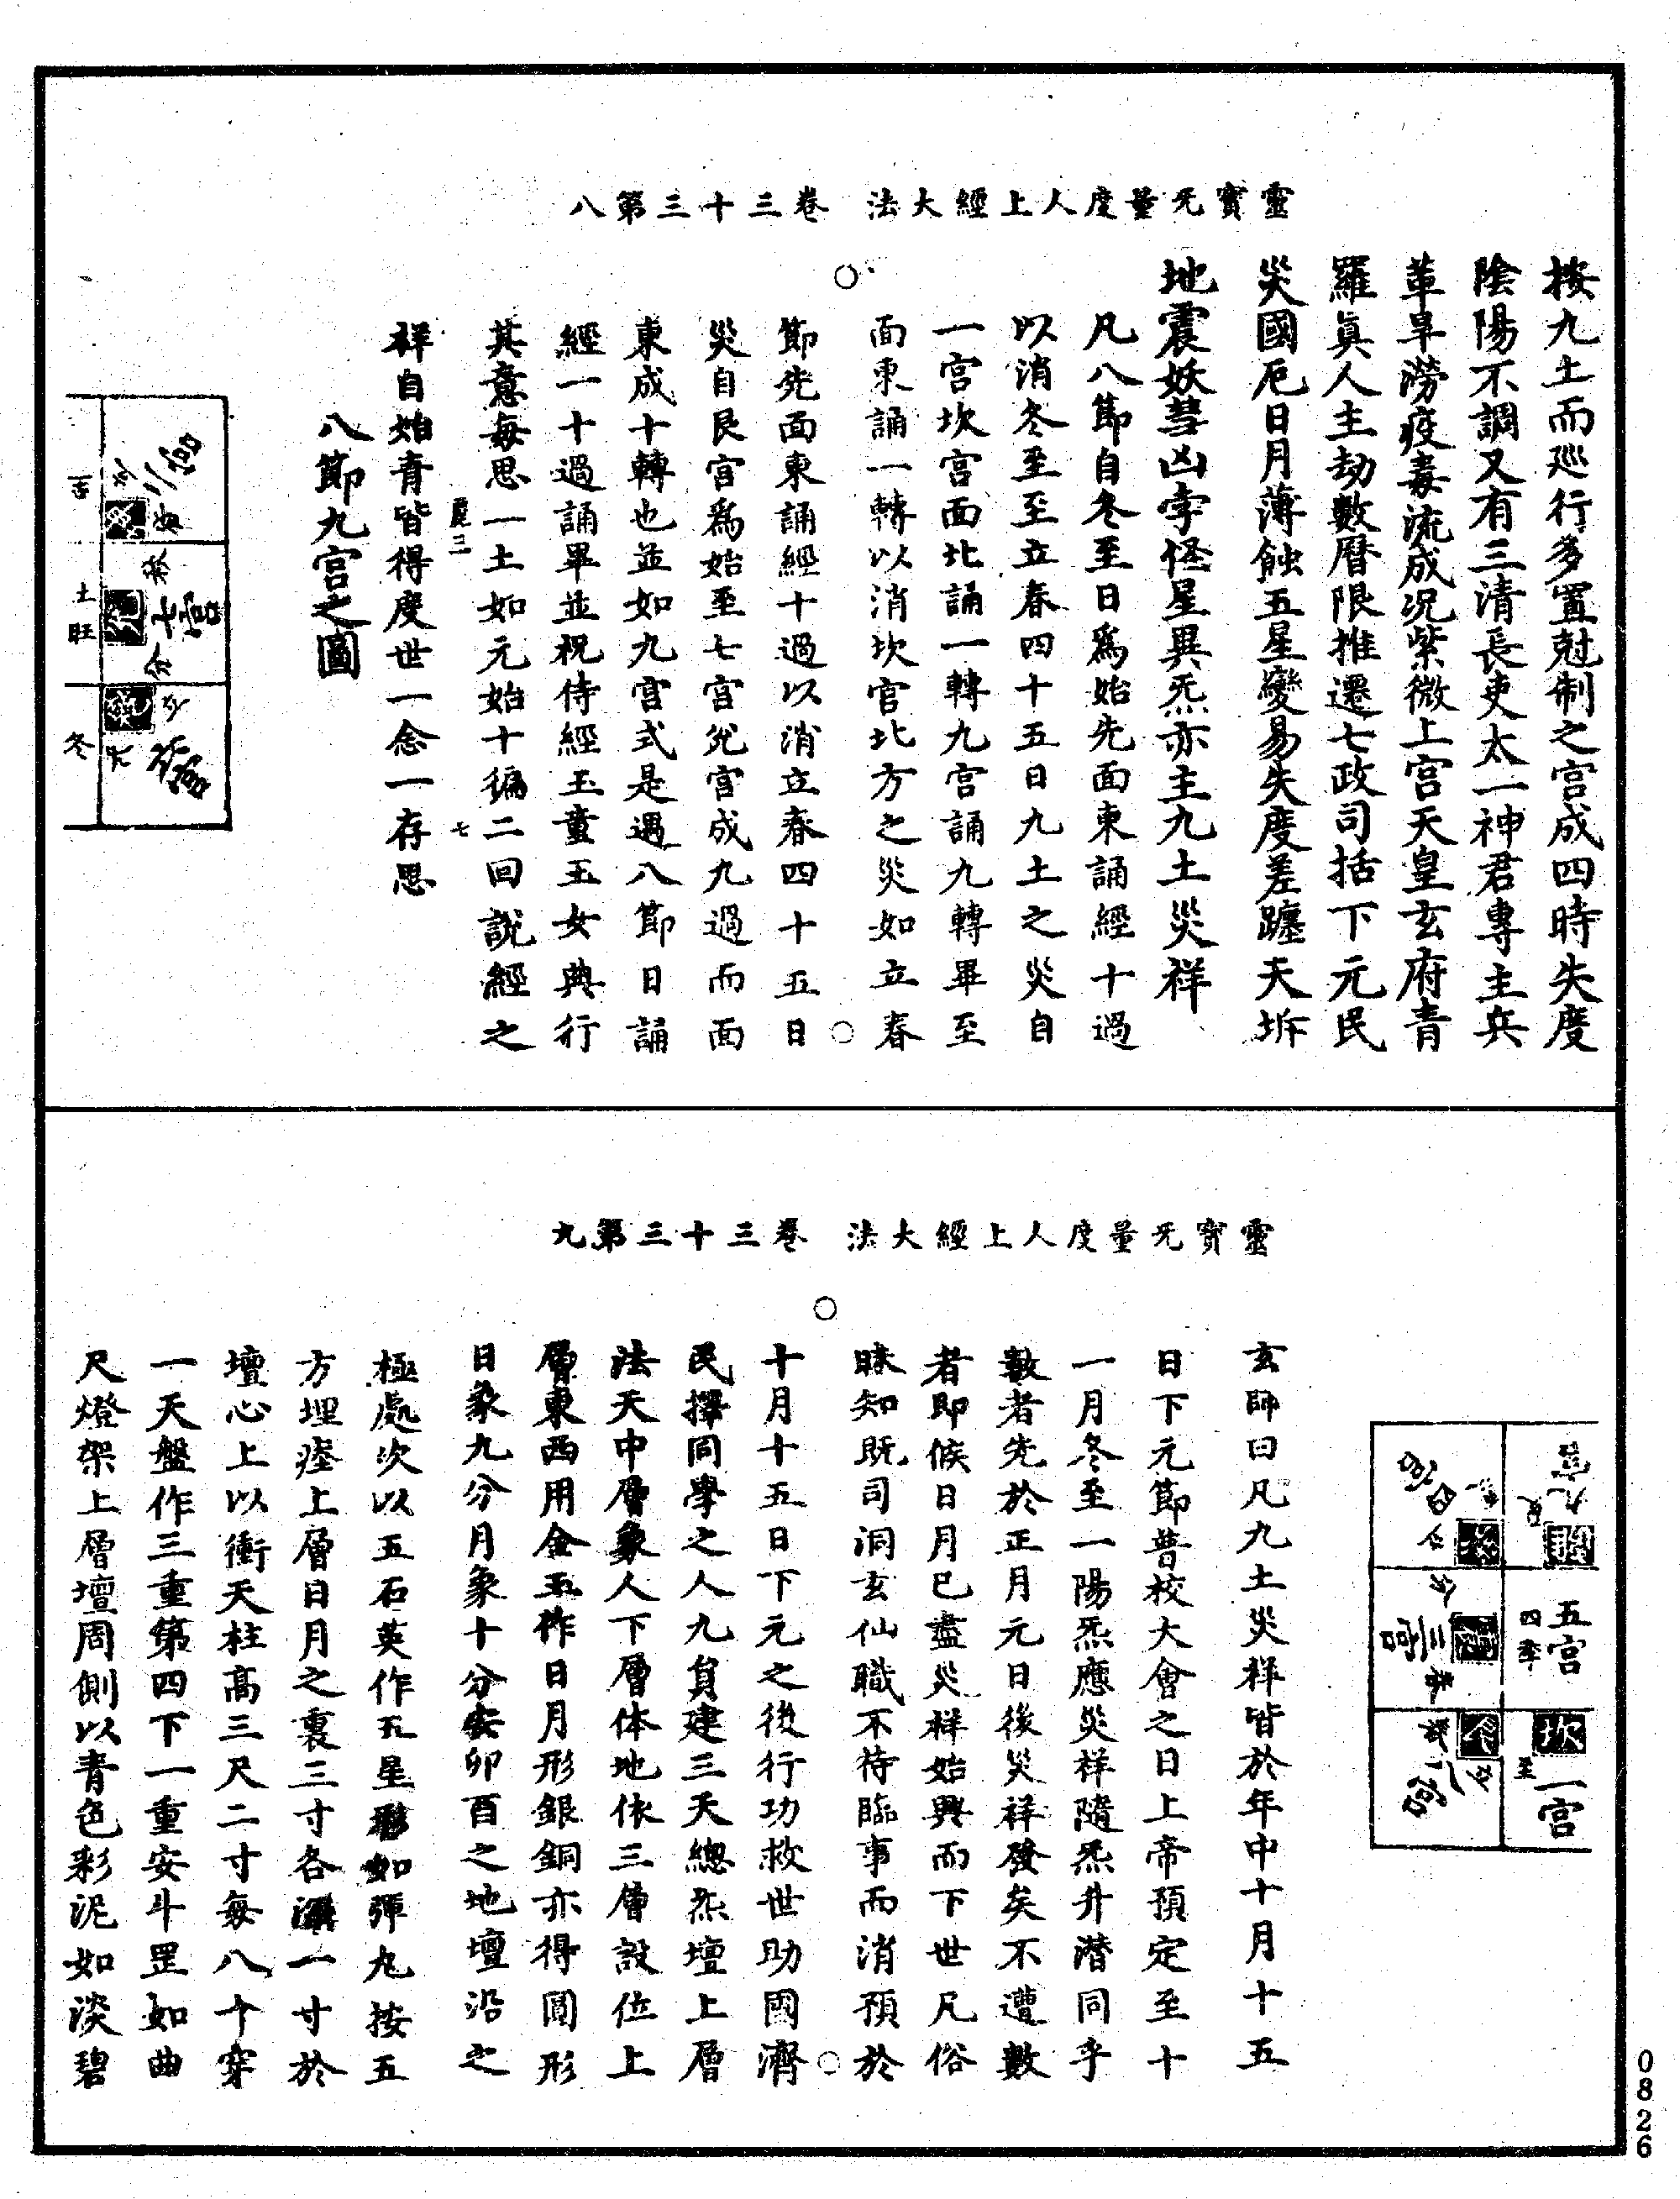 靈寳无量度人上經大法　卷三十三第八
按九土而廵行多置尅制之宫成四時失度
陰陽不調又有三清長吏太一神君專主兵
革旱澇疫毒流成况紫微上宫天皇玄府青
羅真人主劫數曆限推遷七政司括下元民
災國厄日月薄蝕五星變易失度差躔天坼
地震妖彗凶孛怪星異炁亦主九土災祥
凡八節自冬至日爲始先面東誦經十過
以消冬至至立春四十五日九土之災自
一宫坎宫面北誦一轉九宫誦九轉畢至
面東誦一轉以消坎宫北方之災如立春
節先面東誦經十過以消立春四十五日
災自艮宫爲始至七宫兊宫成九過而面
東成十轉也並如九宫式是遇八節日誦
經一十過誦畢並祝侍經玉童玉女典行
其意每思一土如元始十徧二回說經之
麗三　七
祥自始青皆得度世一念一存思
八節九宫之圖
土旺
七宫
冬
宫
靈寳无量度人上經大法　卷三十三第九
九宫
五宫
四季
坎
至
一宫
四宫
三宫
八宫
玄師曰凡九土災祥皆於年中十月十五
日下元節普校大會之日上帝預定至十
一月冬至一陽炁應災祥隨炁升潜同乎
數者先於正月元日後災祥發矣不遭數
者即候日月巳盡災祥始興而下世凡俗
昧知既司洞玄仙職不待臨事而消預於
十月十五日下元之後行功救世助國濟
民擇同學之人九負建三天總炁壇上層
法天中層象人下層体地依三層設位上
層東西用金玉作日月形銀銅亦得圓形
日象九分月象十分安卯酉之地壇沿之
極處次以五石英作五星形如彈丸按五
方埋瘞上層日月之裏三寸各深一寸於
壇心上以衝天柱高三尺二寸每八寸穿
一天盤作三重第四下一重安斗罡如曲
尺燈架上層壇周側以青色彩泥如淡碧
0826